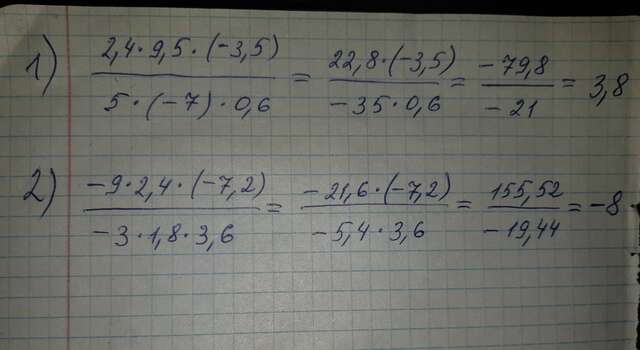 1) 2,4 · 9,5 · (-3,5) / 5 · (-7) · 0,6 = 22,8 · (-3,5) / -35 · 0,6 = -79,8 / -21 = 3,8
2) -9 · 2,4 · (-7,2) / -3 · 1,8 · 3,6 = -21,6 · (-7,2) / -5,4 · 3,6 = 155,52 / -19,44 = -8